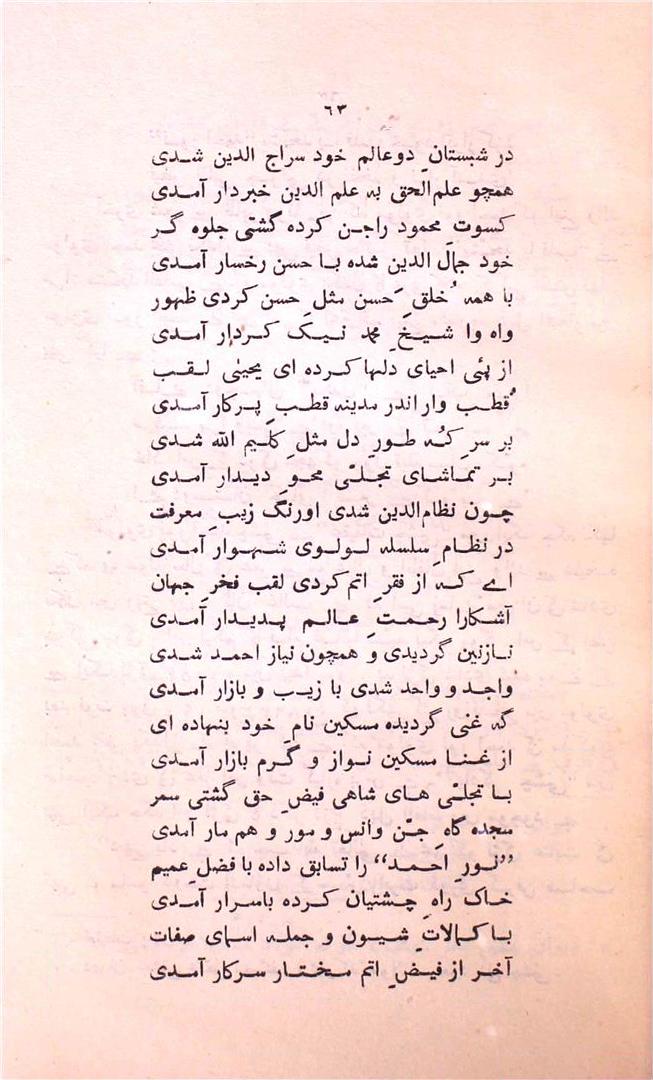 ٦٣
در شبستانِ دو عالم خود سراج الدین شدی
همچو علم الحق به علم الدین خبردار آمدی
کسوتِ محمود راجن کرده گشتی جلوه گر
خود جمال الدین شده با حسن رخسار آمدی
با همه خُلقِ حَسن مثلِ حسن کردی ظهور
واه وا شیخِ محمد نیک کردار آمدی
از پئی احیای دلها کرده ای یحییٰ لقب
قُطب وار اندر مدینه قطبِ پرکار آمدی
بر سرِ کُه طورِ دل مثلِ کلیم الله شدی
بر تماشای تجلّی محوِ دیدار آمدی
چون نظام الدین شدی اورنگ زیبِ معرفت
در نظامِ سلسله لولوی شهوار آمدی
اے که از فقرِ اتم کردی لقب فخرِ جهان
آشکارا رحمتِ عالم پدیدار آمدی
نازنین گردیدی و همچون نیاز احمد شدی
واجد و واحد شدی با زیب و بازار آمدی
گه غنی گردیده مسکین نامِ خود بنهاده ای
از غنا مسکین نواز و گرم بازار آمدی
با تجلّی های شاهی فیضِ حق گشتی سمر
سجده گاهِ جن وانس و مور و هم مار آمدی
”نورِ احمد“ را تسابق داده با فضلِ عمیم
خاک راهِ چشتیان کرده باسرار آمدی
با کمالاتِ شیون و جمله اسمای صفات
آخر از فیضِ اتم مختار سرکار آمدی